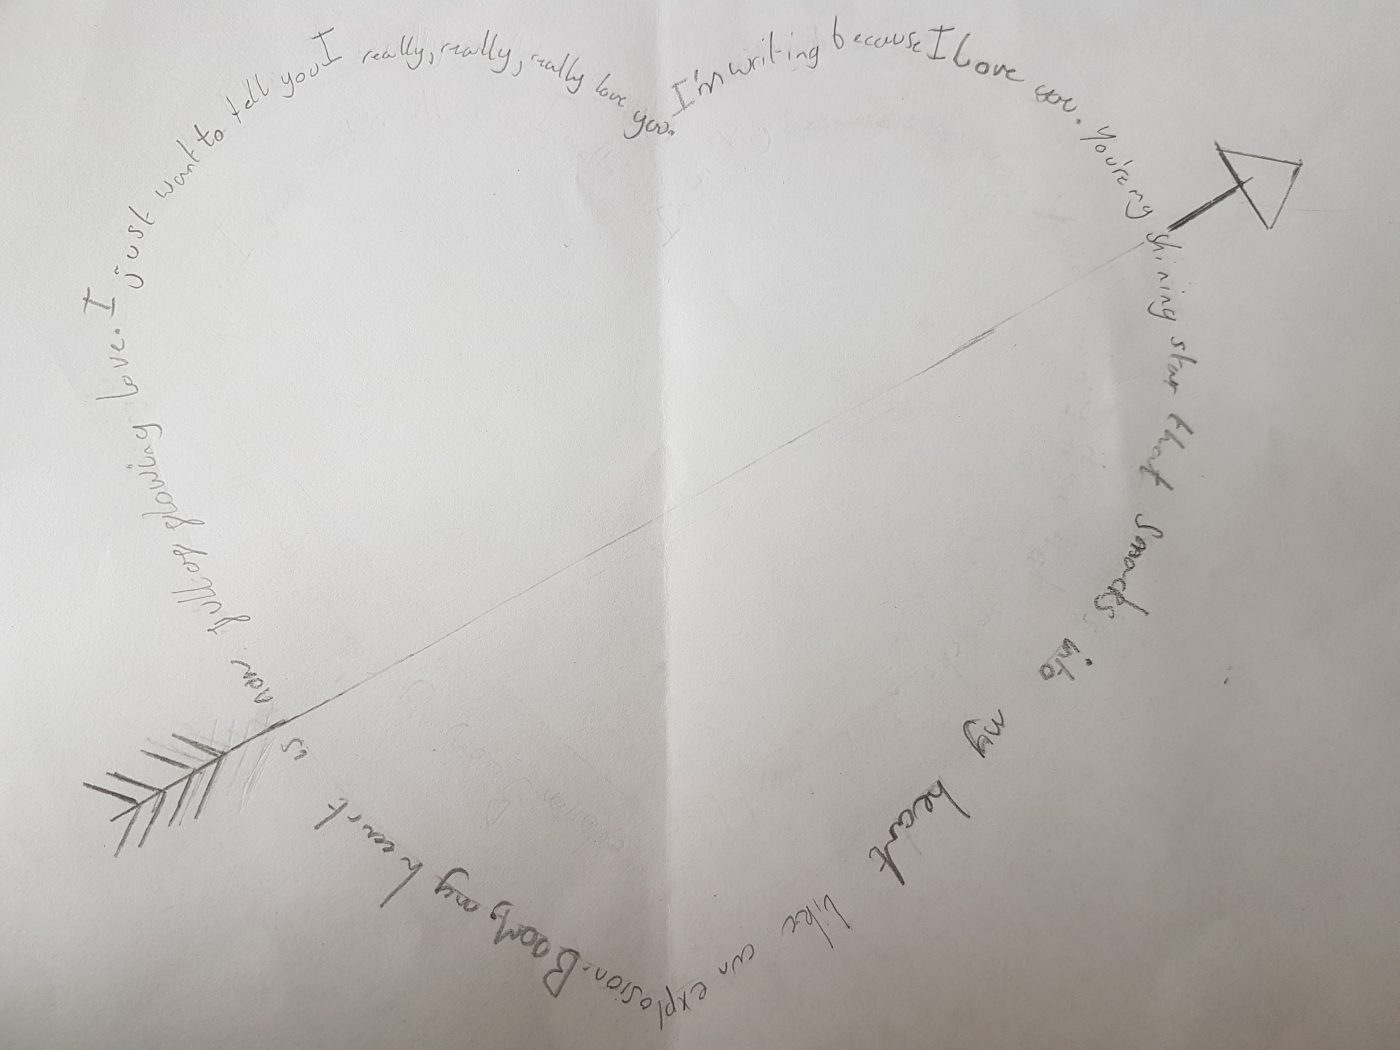 I'm writing because I Love you. You're my shining star that smacks into my heart like an explosion. Boom, my heart is now full of flowing love. I just want to tell you I really, really, really love you.